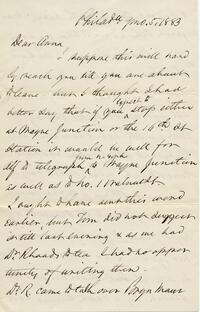 Philada 1mo. 5, 1883
Dear Anna
I suppose this will hard
ly reach you till you are about
to leave but I thought I had
better say that if you expect to stop either
at Wayne Junction or the 16th St
Station it would be well for
to telegraph from N. York Wayne Junction
as well as to No. 1 Walnut St
I ought to have sent this word
earlier but Tom did not suggest
it till last evening & as we had
Dr. Rhoads to tea I had no oppor
tunity of writing then.
Dr R. came to talk over Bryn Mawr